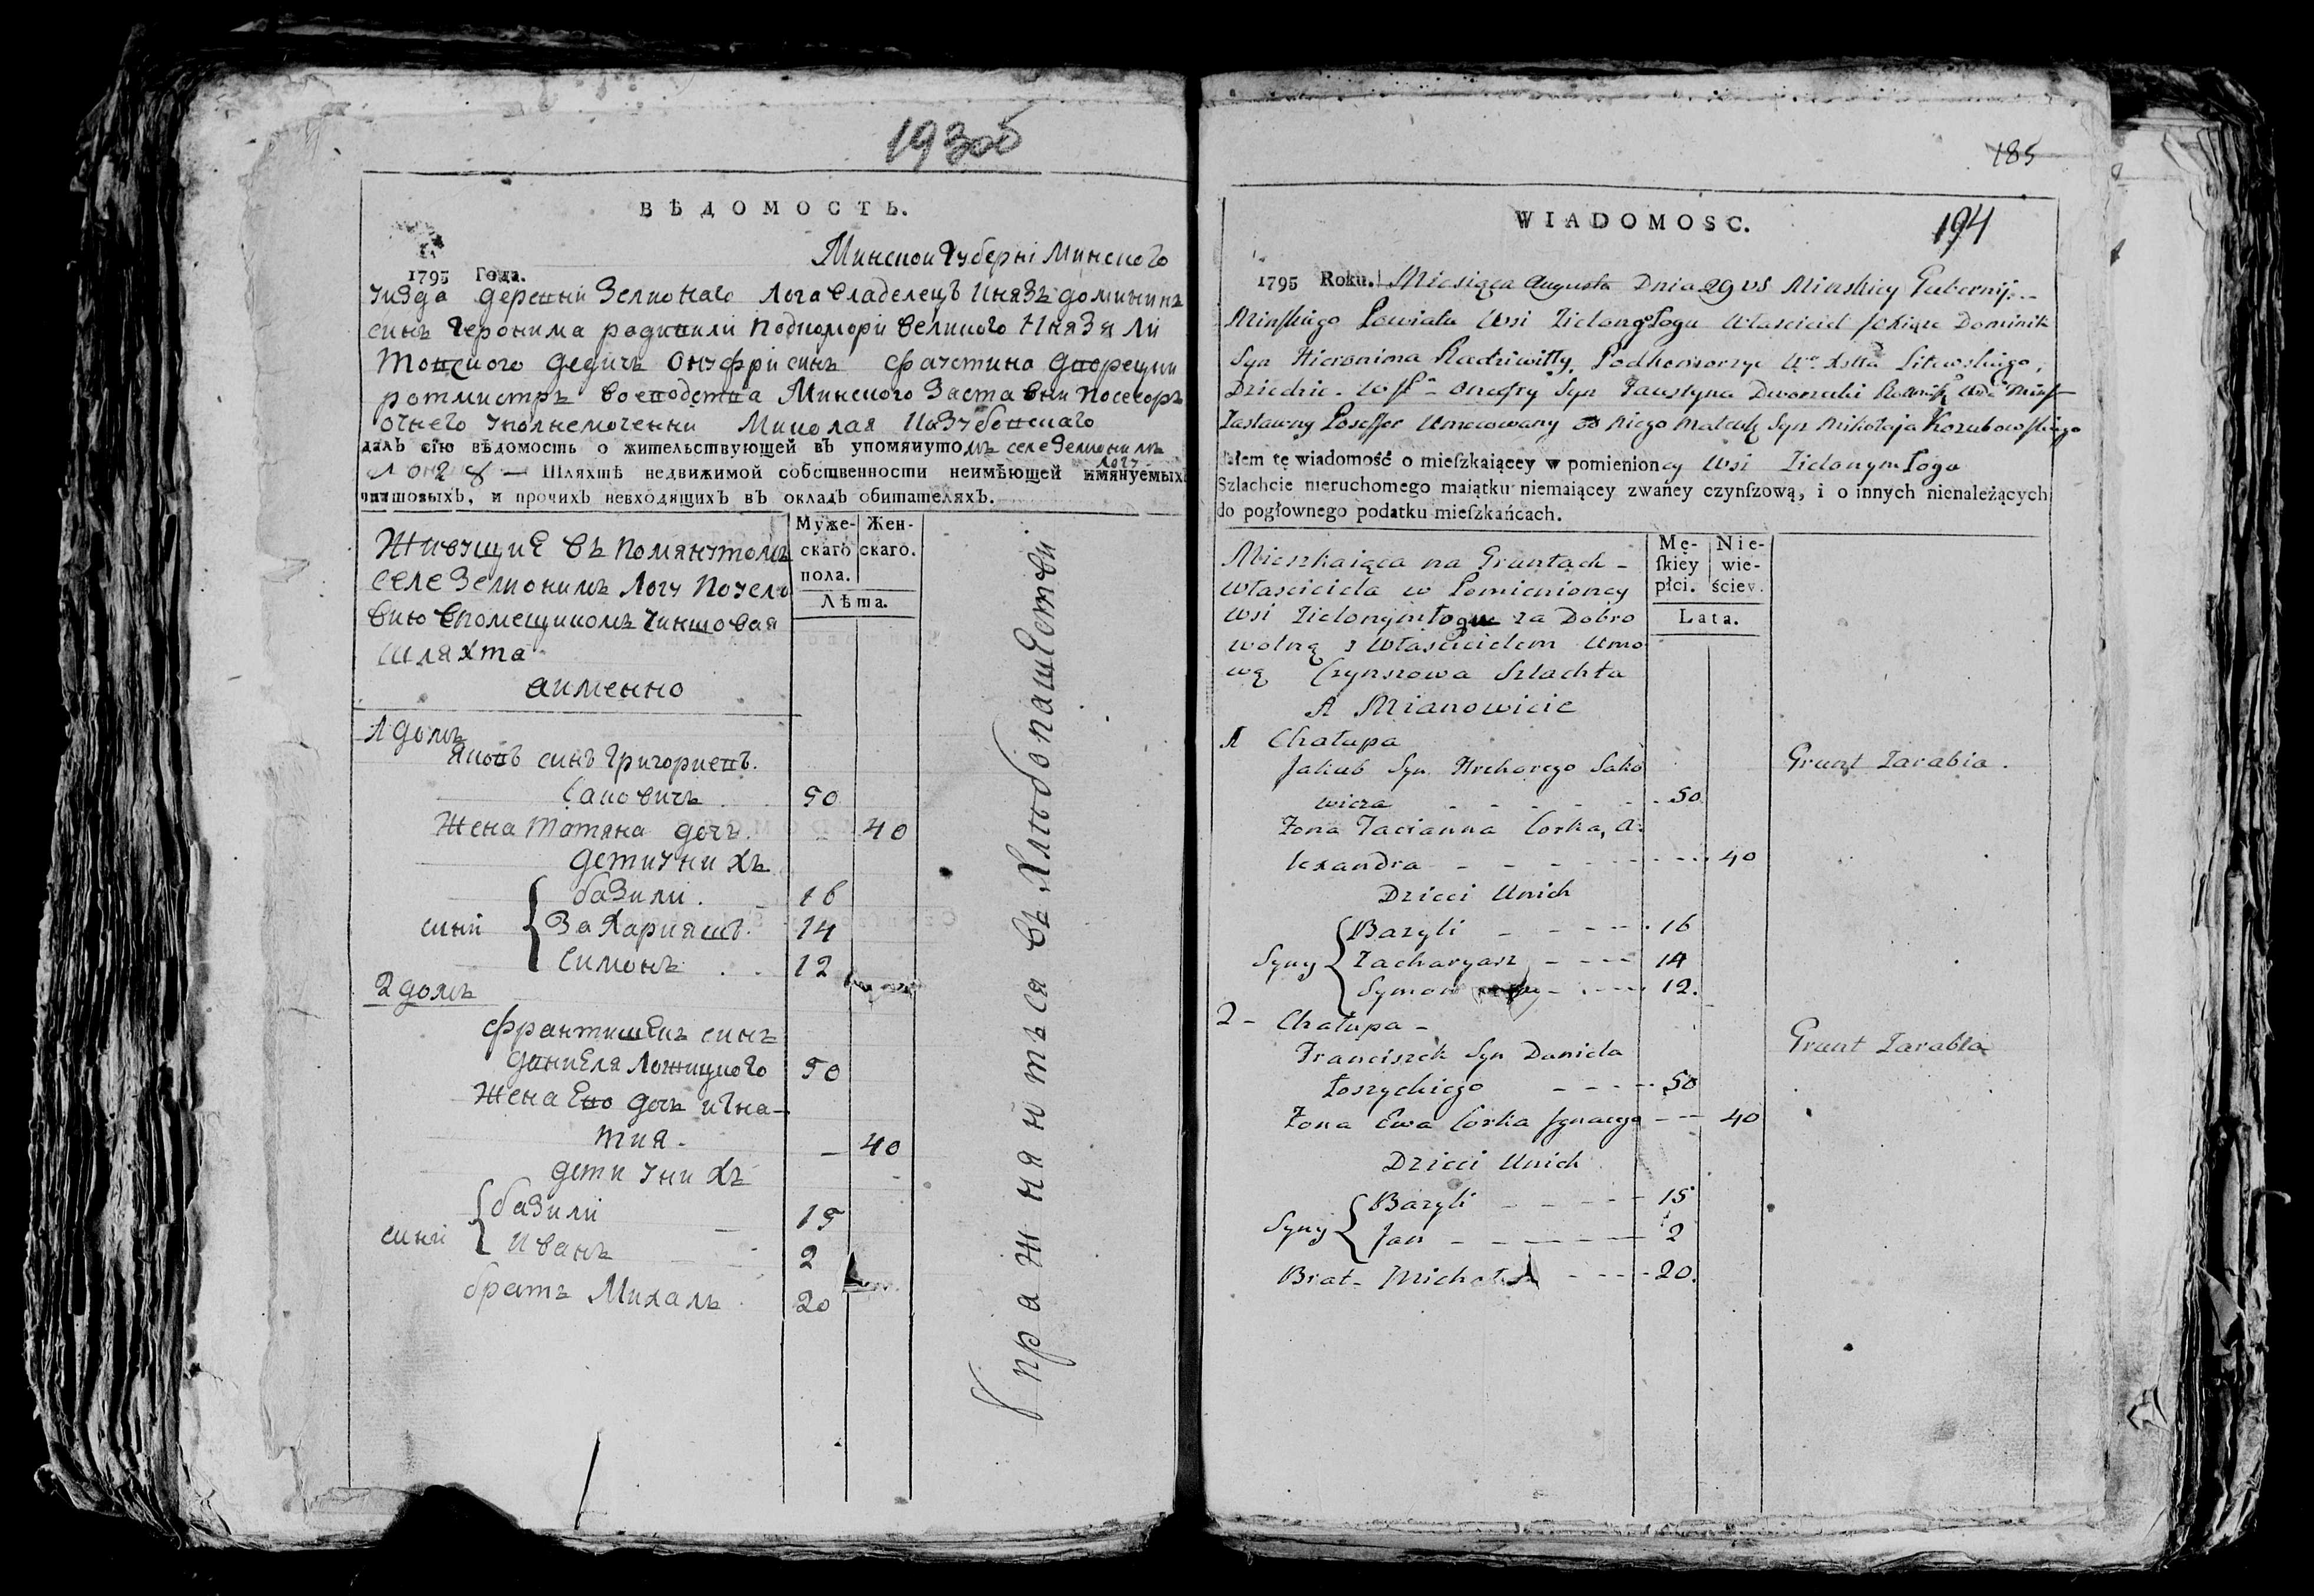 193об
ВѢДОМОСТЬ.
Минскои Губерні Минского
1795 Года.
уизда деревни Зелионаго Лога Владелецъ Князь доминикъ
синъ Геронима радивили Подкоморі великого Князя Ли
товского дедичъ Онуфри синъ Фаустина дворецки
ротмистръ воеводства Минского Заставни посесоръ
от него уполнемоченни Миколая Козубовского
далъ сїю вѣдомость о жительствующей въ упомянутомъ селе Зелионимъ
Логу — Шляхтѣ недвижимой собственности неимѣющей имянуемыхъ
чиншовыхъ, и прочихъ невходящихъ въ окладъ обитателяхъ.
Муже-скаго пола. Жен-скаго.
Лѣта.
Живущие въ помянутомъ
селе Зелионимъ Логу по усло
вию спомещикомъ чиншовая
шляхта
аименно
1 домъ
Яковъ синъ Григориевъ.
Саковичъ 50
Жена Татяна дочъ. 40
дети у них
сині { базили. 16
Захарияшъ. 14
Симонъ 12
2 домъ
Франтишекъ синъ
даниеля Ложицкого 50
Жена Ево дочь игна-
тия - 40
дети у них
сині { базили 15
Иванъ 2
братъ Михалъ 20
Упражняютъся въ хлѣбопашестви
185
WIADOMOSC.
194
1795 Roku. Miesiąca Augusta Dnia 29 VS Minskiey Gubernij -
Minskiego Powiatu Wsi ZielongoŁogu Własciciel Xkiąze Dominik
Syn Hieronima Radziwiłły, Podkomorzyc Wgo Xstta Litewskiego,
Dziedzic. Onufry Syn Faustyna Dworzecki
Zastawny Posessor Umocowany od Niego Mateusz Syn Mikołaja Kozubowskiego
Dałem tę wiadomość o mieſzkaiącey w pomienioney Wsi Zielonym Łogu
Szlachcie nieruchomego maiątku niemaiącey zwaney czynſzową, i o innych nienależących
do pogłownego podatku mieſzkańcach.
Mę-ſkiey płci. Nie-wie-ściey.
Lata.
Mieszkaiąca na Gruntach -
własciciela w Pomienioney
Wsi Zielonym Łogu za Dobro
wolną z Własċicielem Umo
wą Czynszowa Szlachta
A Mianowicie
1 Chałupa
Jakub Syn Hrehorego Sako
wicza - - - - - 50
Grunt Zarabia.
Zona Tacianna Corka, A-
lexandra - - - - - 40
Dzieci Unich
Syny { Bazyli - - - - 16
Zacharyasz - - - 14
Symon - - - 12.
2 - Chałupa -
Franciszek Syn Daniela
Łoszyckiego - - - - 50
Grunt Zarabia
Zona Ewa Corka Jgnacego - - 40
Dzieci Unich
Syny { Bazyli - - - - 15
Jan - - - - - 2
Brat - Michał - - - - 20.